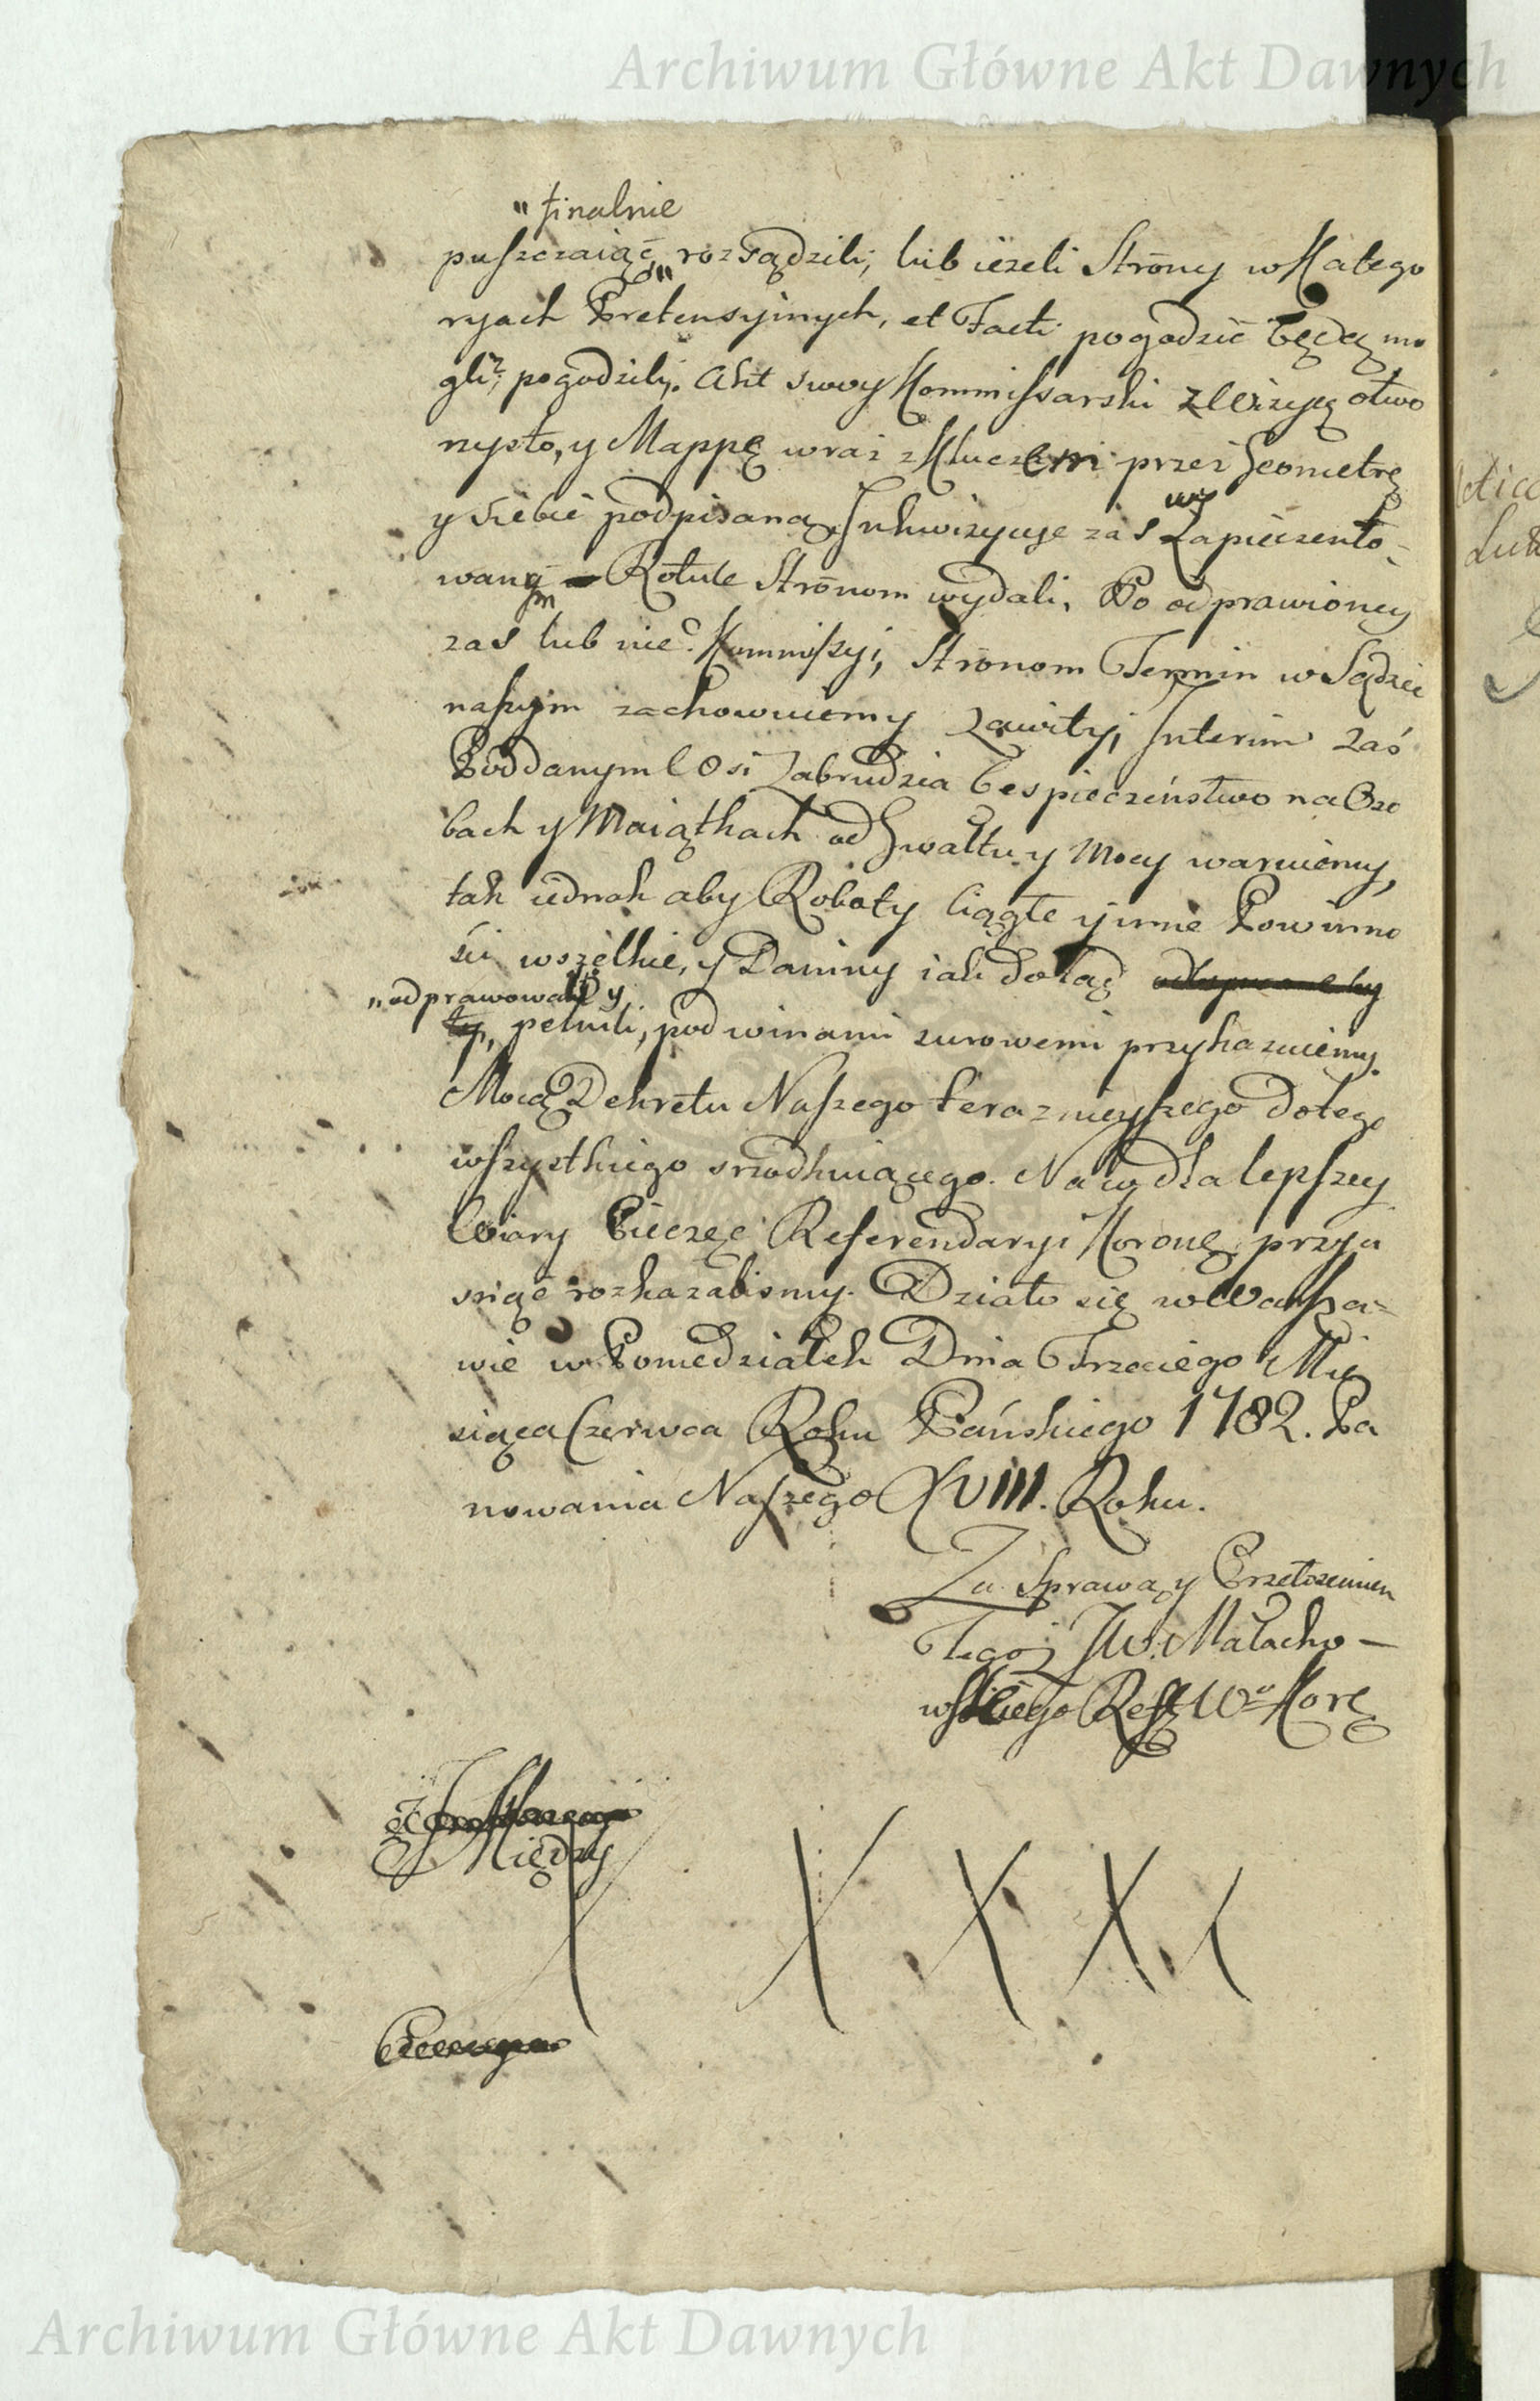 Archiwum Główne Akt Dawnych
" finalnie
puszczaiąc, rozsądzili, lub ieżeli Strony w Katego
ryach Pretensyinych, et Facti pogodzić będą mo
gli, pogodzili. Akt swoy Kommissarski z Wizyą otwo
rzysto, y Mappę wraz z Kluczem przez Geometrę
y siebie podpisaną, Inkwizycye zaś w Zapieczento-
wanym Rotule Stronom wydali. Po odprawioney
zaś lub nie Kommissyi, Stronom Termin w Sądzie
naszym zachowuiemy zawity, Interim zaś
Poddanym Wsi Zabrudzia bespieczeństwo na Oso
bach y Maiątkach od Gwałtu y Mocy waruiemy,
tak iednak aby Roboty ciągłe y inne Powinno
ści wszelkie, y Daniny iak dotąd
" odprawowali y
pełnili, pod winami surowemi przykazuiemy.
Mocą Dekretu Naszego teraznieyszego do tego
wszystkiego srzodkuiącego. Na co dla lepszey
Wiary Pieczęć Referendaryi Koronę przyci
snąć rozkazalismy. Działo się w Warsza=
wie w Poniedziałek Dnia Trzeciego Mie
siąca Czerwca Roku Pańskiego 1782. Pa
nowania Naszego XVIII. Roku.
Za Sprawą y Przełożeniem
Tegoż JW. Małacho-
wskiego Refz Wo Korę
Między
Archiwum Główne Akt Dawnych